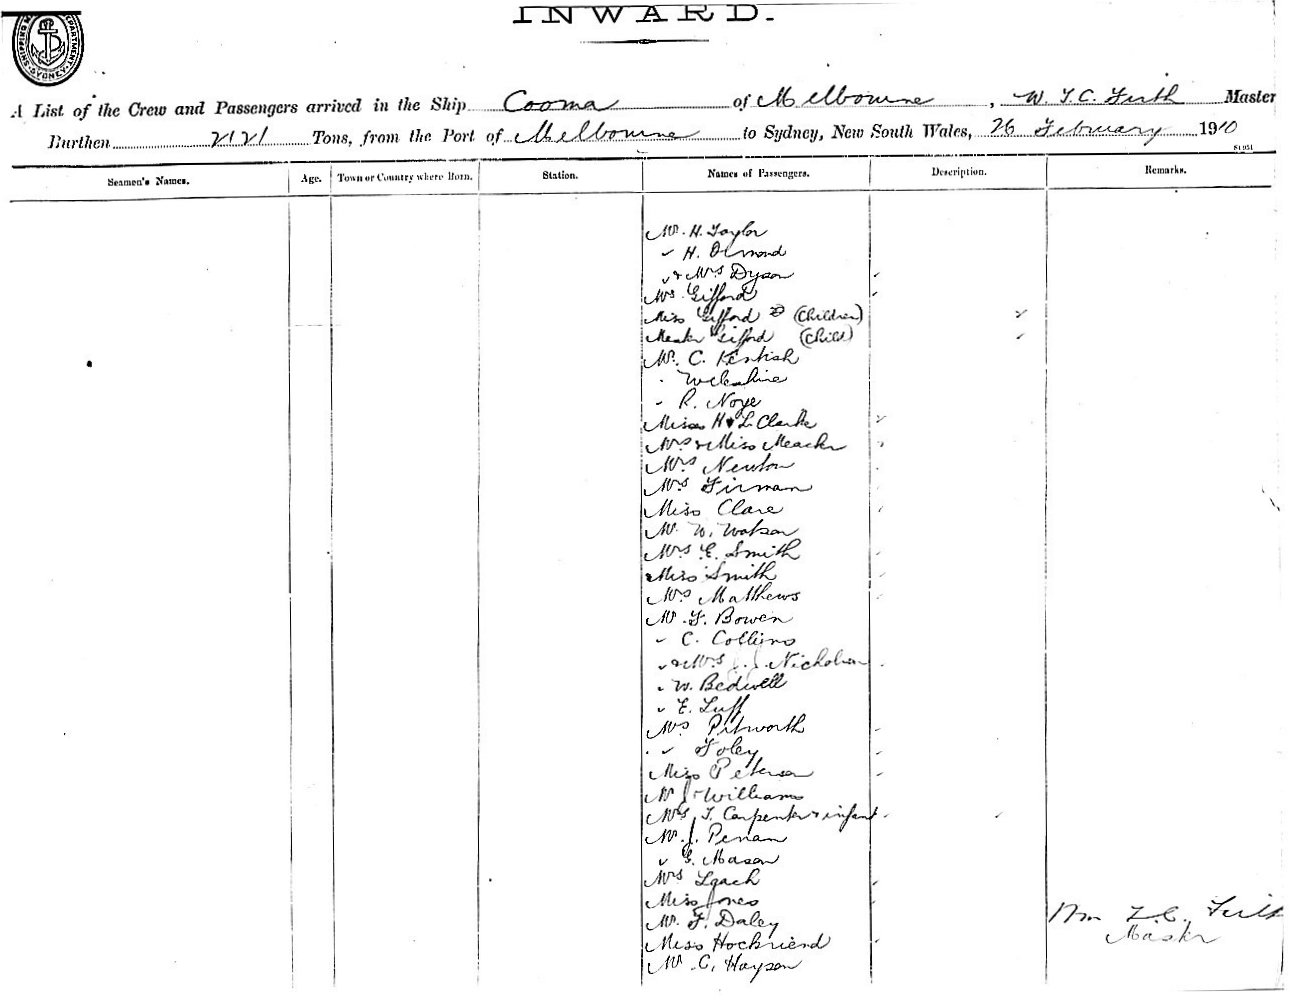 INWARD.
SHIPPING MASTER'S DEPARTMENT. SYDNEY.
A List of the Crew and Passengers arrived in the Ship Cooma of Melbourne, W. T. C. Firth Master
Burthen 2121 Tons, from the Port of Melbourne to Sydney, New South Wales, 26 February 1910
Seamen's Names. Age. Town or Country where Born. Station. Names of Passengers. Description. Remarks.
Mr. H. Taylor
" H. Ormond
" & Mrs Dyson
Mrs. Gifford
Miss Gifford (Children)
Master Gifford (Child)
Mr. C. Kentish
" Wilkshire
" R. Noye
Misses H & L Clarke
Mrs & Miss Meacher
Mrs Newton
Mrs Firman
Miss Clare
Mr. W. Watson
Mrs E. Smith
Miss Smith
Mrs Matthews
Mr. F. Bowen
" C. Collins
" & Mrs J. J. Nicholson
" W. Bedwell
" E. Luff
Mrs Pitworth
" Foley
Miss Peterson
Mr J. Williams
Mrs T. Carpenter & infant
Mr. J. Penam
" G. Mason
Mrs Leach
Miss Jones
Mr. F. Daley
Miss Hockriend
Mr C. Hayson
Wm T. C. Firth
Master